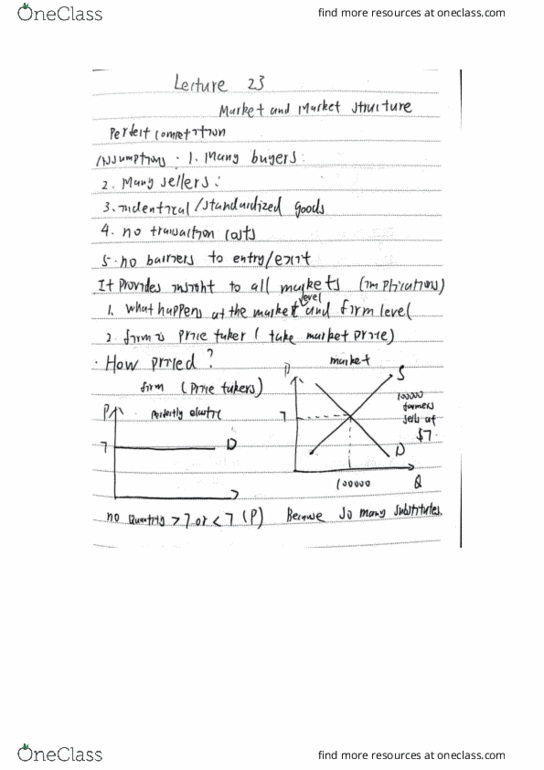 OneClass
find more resources at oneclass.com
Lecture 23
Market and Market structure
Perfect competition
Assumptions . 1. Many buyers:
2. Many sellers:
3. indentical/standardized goods
4. no transaction costs
5. no barriers to entry/exit
It provides insight to all markets (implications)
1. What happens at the market level and firm level
2. firm is price taker ( take market price)
. How priced?
firm (Price takers)
P
Perfectly elastic
7
D
P
market
S
7
100000
farmers
sells at
$7.
D
100000
Q
no Quantity >7 or <7 (P) Because so many substitutes.
OneClass
find more resources at oneclass.com